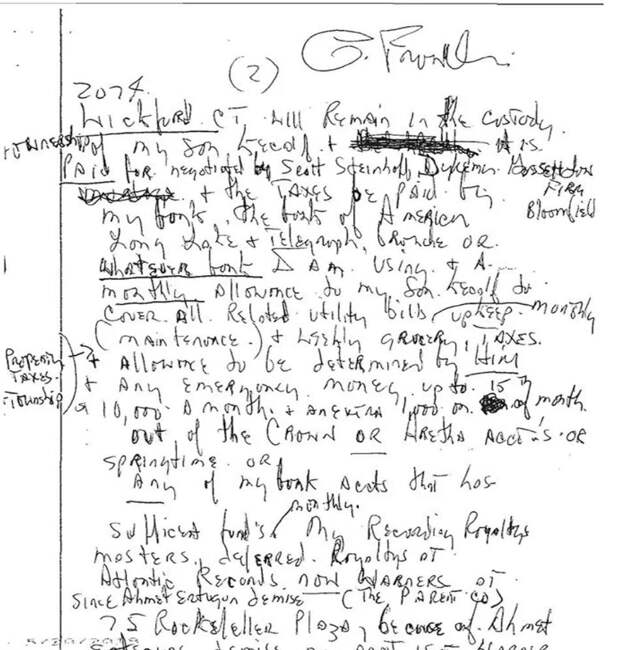 (2) A. Franklin
2074
Wickford CT will Remain in the custody
+ ownership of my son Kecalf + it is
PAID for negotiated by Scott Steinhoff, Dykema Gossett Law
+ the TAXES be PAID by FIRM
my bank, the bank of America Bloomfield
Long Lake + Telegraph, branch OR
whatever bank I am using + A
monthly Allowance to my son Kecalf to
COVER ALL Related utility bills upkeep monthly
(maintenance) + weekly grocery, TAXES.
Property TAXES Township
+ Allowance to be determined by Him
+ Any emergency money up to 15th
10,000 A month + an extra 1,000 on of month
out of the CROWN OR Aretha Acct's OR
springtime OR
Any of my bank Accts that has
monthly.
sufficient fund's My Recording Royaltys
masters, deferred Royaltys at
Atlantic Records now Warners at
since Ahmet Ertegun demise (The PARENT CO)
75 Rockefeller Plaza, because of Ahmet